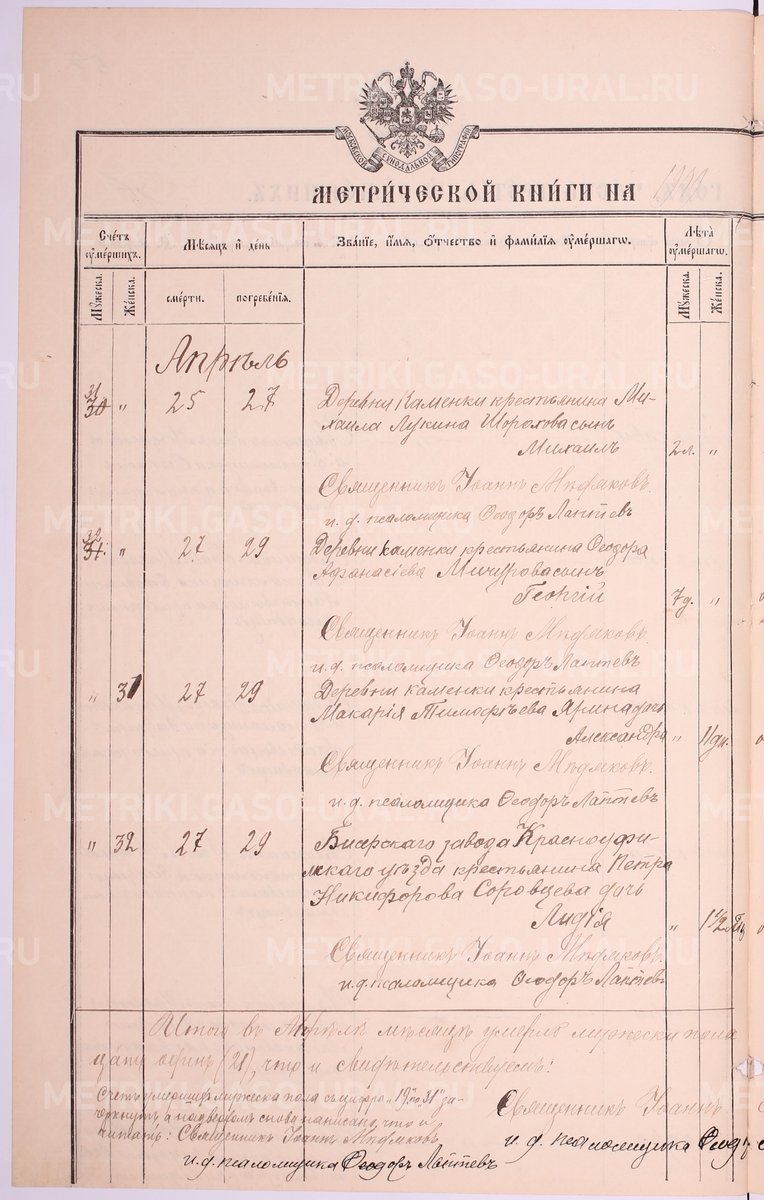 МОСКОВСКОЙ СИНОДАЛЬНОЙ ТИПОГРАФІИ
МЕТРИ́ЧЕСКОЙ КНИ́ГИ НА
Счётъ ᲂу҆ме́ршихъ.
Мѣ́сяцъ и҆ де́нь
Зва́нїе, и҆́мя, ѻ҆́тчество и҆ фами́лїя ᲂу҆ме́ршагѡ.
Лѣ́та ᲂу҆ме́ршагѡ.
Мꙋ́жеска.
Же́нска.
сме́рти.
погребе́нїѧ.
Мꙋ́жеска.
Же́нска.
Апрѣль
31
30 " 25 27 Деревни Каменки крестьянина Ми-
хаила Лукина Шорохова сынъ
Михаилъ 2 л. "
Священникъ Іоаннъ
и. д. псаломщика Ѳеодоръ Лаптевъ
32
31. " 27 29 Деревни Каменки крестьянина Ѳеодора
Афанасіева Мичурова сынъ
Георгій 7 д. "
Священникъ Іоаннъ
и. д. псаломщика Ѳеодоръ Лаптевъ
" 31 27 29 Деревни Каменки крестьянина
Макарія Тимофѣева Ярина дочь
Александра " 11 дн.
Священникъ Іоаннъ
и. д. псаломщика Ѳеодоръ Лаптевъ
" 32 27 29 Бисерскаго завода Красноуфи-
мскаго уѣзда крестьянина Петра
Никифорова Соровцева дочь
Лидія " 1 1/2
Священникъ Іоаннъ
и. д. псаломщика Ѳеодоръ Лаптевъ
Итого въ Апрѣлѣ мѣсяцѣ умерло мужеска пола
одинъ (21), что и свидѣтельствуемъ:
Счетъ умершихъ мужеска пола съ цифра "19" по "31" за-
черкнутъ, а надъ верхомъ снова написано, что и
читать: Священникъ Іоаннъ
и. д. псаломщика Ѳеодоръ Лаптевъ
Священникъ Іоаннъ
и. д. псаломщика Ѳеод
METRIKI.GASO-URAL.RU